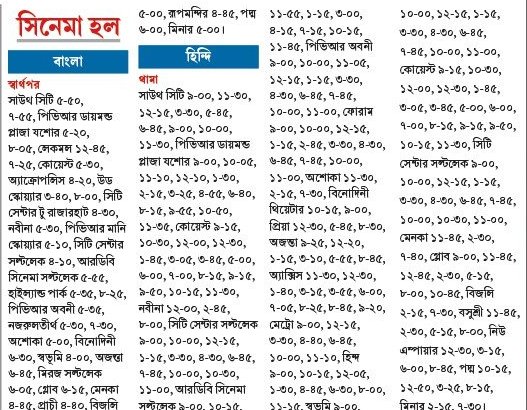 সিনেমা হল
বাংলা
স্বার্থপর
সাউথ সিটি ৫-৫০,
৭-৫৫, পিভিআর ডায়মন্ড
প্লাজা যশোর ৫-২০,
৮-০৫, লেকমল ১২-৪৫,
৭-২৫, কোয়েস্ট ৫-৩০,
অ্যাক্রোপলিস ৪-২০, উড
স্কোয়্যার ৩-৪০, ৮-০০, সিটি
সেন্টার টু রাজারহাট ৪-৩০,
নবীনা ৫-৩০, পিভিআর মানি
স্কোয়্যার ৫-১০, সিটি সেন্টার
সল্টলেক ৪-১০, আরডিবি
সিনেমা সল্টলেক ৫-৫৫,
হাইল্যান্ড পার্ক ৫-৩৫, ৮-২৫,
পিভিআর অবনী ৫-৩৫,
নজরুলতীর্থ ৫-৩০, ৭-৩০,
অশোকা ৫-০০, বিনোদিনী
৬-৩০, স্বভূমি ৪-০০, অজন্তা
৬-৪৫, মিরজ সল্টলেক
৬-০৫, গ্লোব ৬-১৫, মেনকা
৪-৪৫, প্রাচী ৪-৪০, বিজলি
৫-০০, রূপমন্দির ৪-৪৫, পদ্ম
৬-০০, মিনার ৫-০০।
হিন্দি
থামা
সাউথ সিটি ৯-০০, ১১-৩০,
১২-১৫, ৩-৩০, ৫-৪৫,
৬-৪৫, ৯-০০, ১০-০০,
১১-৩০, পিভিআর ডায়মন্ড
প্লাজা যশোর ৯-০০, ১০-০৫,
১১-১০, ১২-১০, ১-৩০,
২-১৫, ৩-২৫, ৪-৫৫, ৬-৪০,
৮-১৫, ৯-৫৫, ১০-৫০,
১১-৩৫, কোয়েস্ট ৯-১৫,
১০-৩০, ১২-০০, ১২-৩০,
১-৪৫, ৩-০৫, ৩-৪৫, ৫-০০,
৬-০০, ৭-০০, ৮-১৫, ৯-১৫,
৯-৫০, ১০-১৫, ১১-৩০,
নবীনা ১২-০০, ২-৪৫,
৮-০০, সিটি সেন্টার সল্টলেক
৯-০০, ১০-০০, ১২-১৫,
১-১৫, ৩-৩০, ৪-৩০, ৬-৪৫,
৭-৪৫, ১০-০০, ১০-৩০,
১১-০০, আরডিবি সিনেমা
সল্টলেক ৯-০০, ১০-৩০,
১১-৫৫, ১-১৫, ৩-০০,
৪-১৫, ৭-১৫, ১০-১৫,
১১-৪৫, পিভিআর অবনী
৯-০০, ১০-০০, ১১-০৫,
১২-১৫, ১-১৫, ৩-৩০,
৪-৩০, ৬-৪৫, ৭-৪৫,
১০-০০, ১১-০০, ফোরাম
৯-০০, ১০-০০, ১২-১৫,
১-১৫, ২-৪৫, ৩-৩০, ৪-৩০,
৬-৪৫, ৭-৪৫, ১০-০০,
১১-০০, অশোকা ১১-৩০,
২-১৫, ৭-৩০, বিনোদিনী
থিয়েটার ১০-১৫, ৯-০০,
প্রিয়া ১২-৩০, ৫-৪৫, ৮-৩০,
অজন্তা ৯-২৫, ১২-২০,
১-১৫, ৩-১০, ৫-৫৫, ৮-৪৫,
অ্যাক্সিস ১১-৩০, ১২-৩০,
১-৪০, ৩-১৫, ৩-৫৫, ৬-০০,
৭-০০, ৮-১৫, ৯-০০, ৯-২০,
মেট্রো ৯-০০, ১২-১৫,
৩-৩০, ৪-৪০, ৬-৪৫,
১০-০০, ১১-১০, হিন্দ
৯-০০, ১০-১৫, ১২-০৫,
১-৩০, ৪-৪৫, ৬-৩০, ৮-০০,
১১-১৫, স্বভূমি ৯-০০,
১০-০০, ১২-১৫, ১-১৫,
৩-৩০, ৪-৩০, ৬-৪৫,
৭-৪৫, ১০-০০, ১১-০০,
কোয়েস্ট ৯-১৫, ১০-৩০,
১২-০০, ১২-৩০, ১-৪৫,
৩-০৫, ৩-৪৫, ৫-০০, ৬-০০,
৭-০০, ৮-১৫, ৯-১৫, ৯-৫০,
১০-১৫, ১১-৩০, সিটি
সেন্টার সল্টলেক ৯-০০,
১০-০০, ১২-১৫, ১-১৫,
৩-৩০, ৪-৩০, ৬-৪৫, ৭-৪৫,
১০-০০, ১০-৩০, ১১-০০,
মেনকা ১১-৪৫, ২-৩০,
৭-৪০, গ্লোব ৯-০০, ১১-৪৫,
১২-৪৫, ২-৩০, ৫-১৫,
৮-০০, ১০-৪৫, বিজলি
২-১৫, ৭-৩০, বসুশ্রী ১১-৪৫,
২-৩০, ৫-১৫, ৮-০০, নিউ
এম্পায়ার ১২-৩০, ৩-১৫,
৬-০০, ৮-৪৫, পদ্ম ১০-১৫,
১২-৫০, ৩-২৫, ৮-১৫,
মিনার ২-১৫, ৭-৩০।